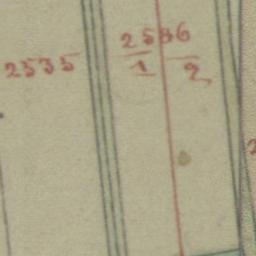 2535
2586
1 2